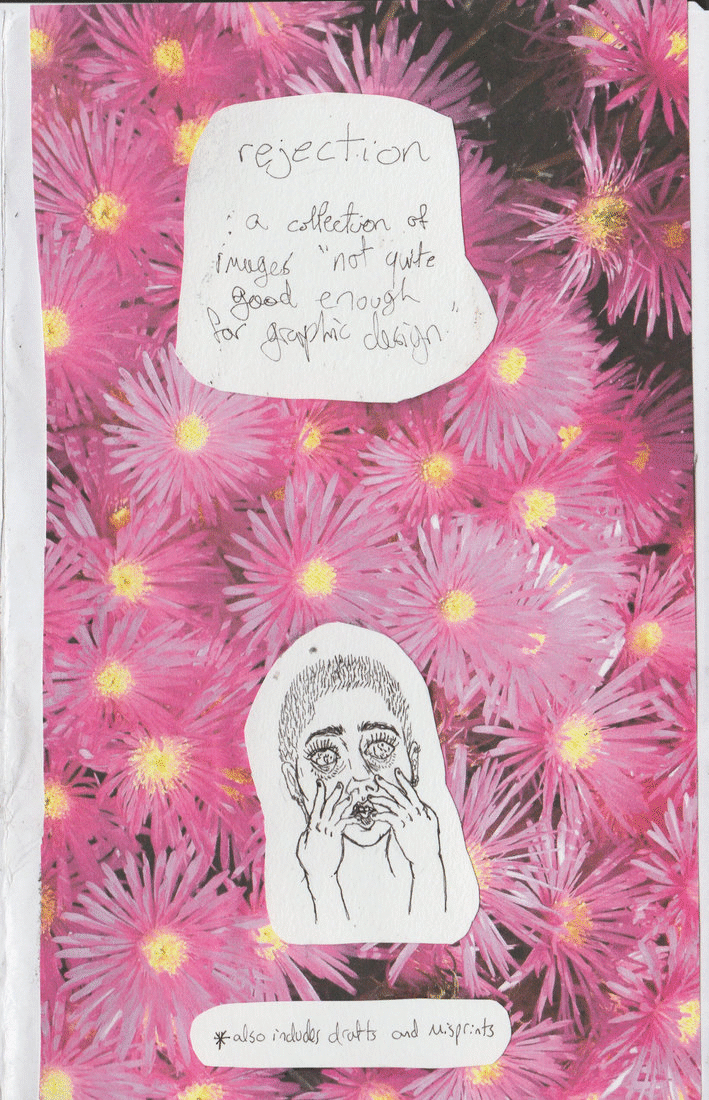 rejection
: a collection of
images "not quite
good enough
for graphic design."
*also includes drafts and misprints